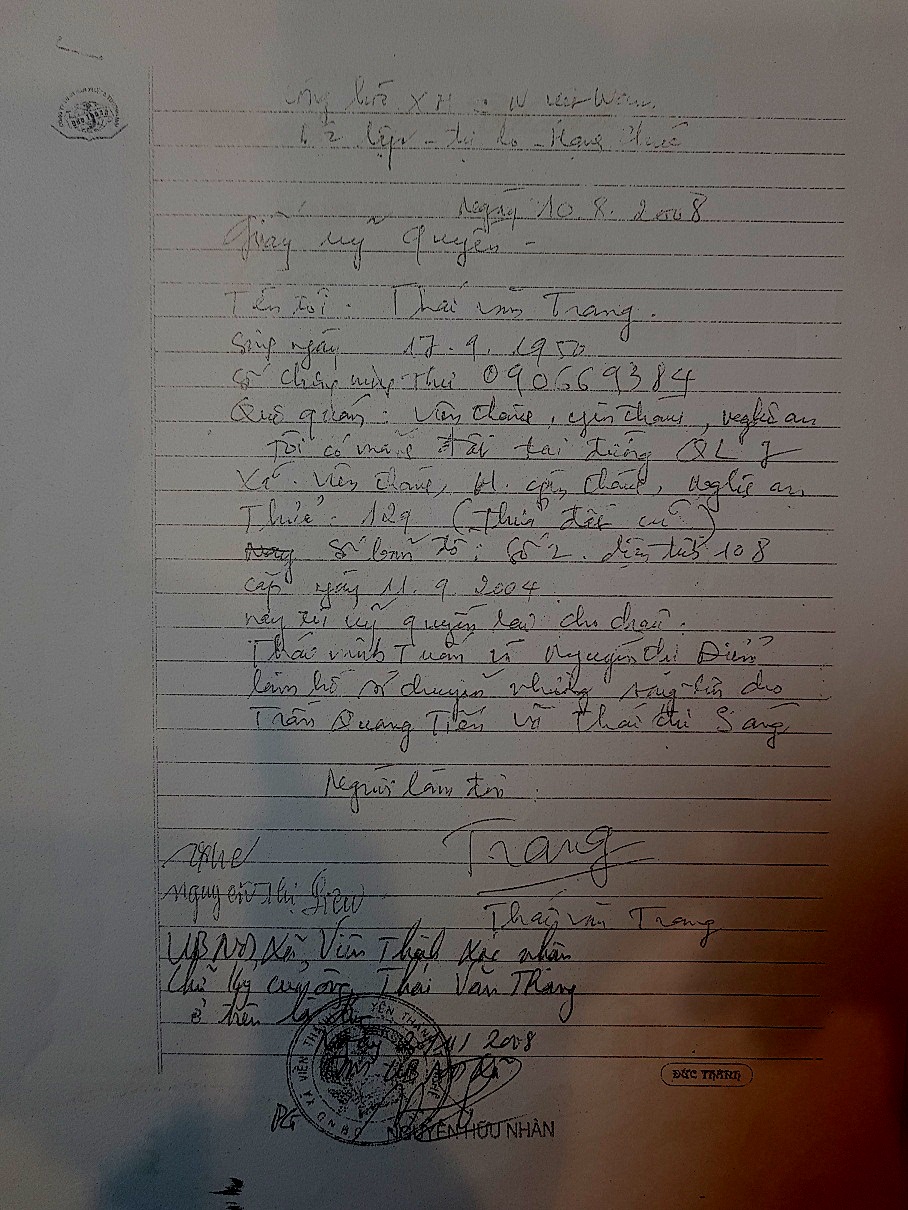 Cộng hòa XHCN Việt Nam
Độc lập - Tự do - Hạnh Phúc
Ngày 10.8.2008
Giấy uỷ quyền -
Tên tôi. Thái văn Trang.
Sinh ngày 17.9.1950
Số chứng minh thư 090669384
Quê quán: Viên thành, yên thành, nghệ an
Tôi có mảnh đất tại đường QL 7
Xã. Viên thành, H. yên thành, Nghệ an
Thửa. 129 (thửa đất cũ)
Số bản đồ: Số 2. diện tích 108
cấp ngày 11.9.2004
nay tôi uỷ quyền lại cho cháu.
Thái minh Tuấn và Nguyễn thị
làm hồ sơ chuyển nhượng cho
Trần Quang Tiến và Thái thị Sang
Người làm đơn
Trang
Nguyễn Thị
Thái văn Trang
UBND Xã Viên Thành Xác nhận
Chữ ký của ông Thái Văn Trang
ở trên là
2008
TM UBND Xã
VIÊN THÀNH YÊN THÀNH
NGUYỄN HỮU NHÀN
ĐỨC THÀNH